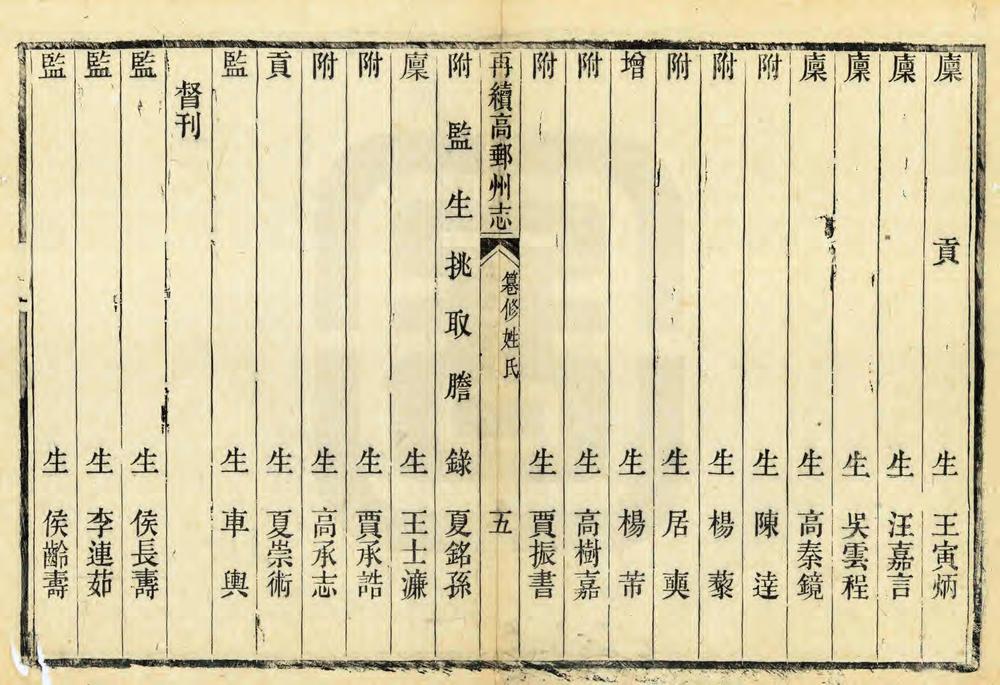 廩貢生王寅炳
廩生汪嘉言
廩生吳雲程
廩生高秦鏡
附生陳逹
附生楊藜
附生居奭
增生楊芾
附生高樹嘉
附生賈振書
再續高郵州志 纂修姓氏 五
附監生挑取謄錄夏銘孫
廩生王士濂
附生賈承誥
附生高承志
貢生夏崇術
監生車輿
督刊
監生侯長壽
監生李連茹
監生侯齡壽